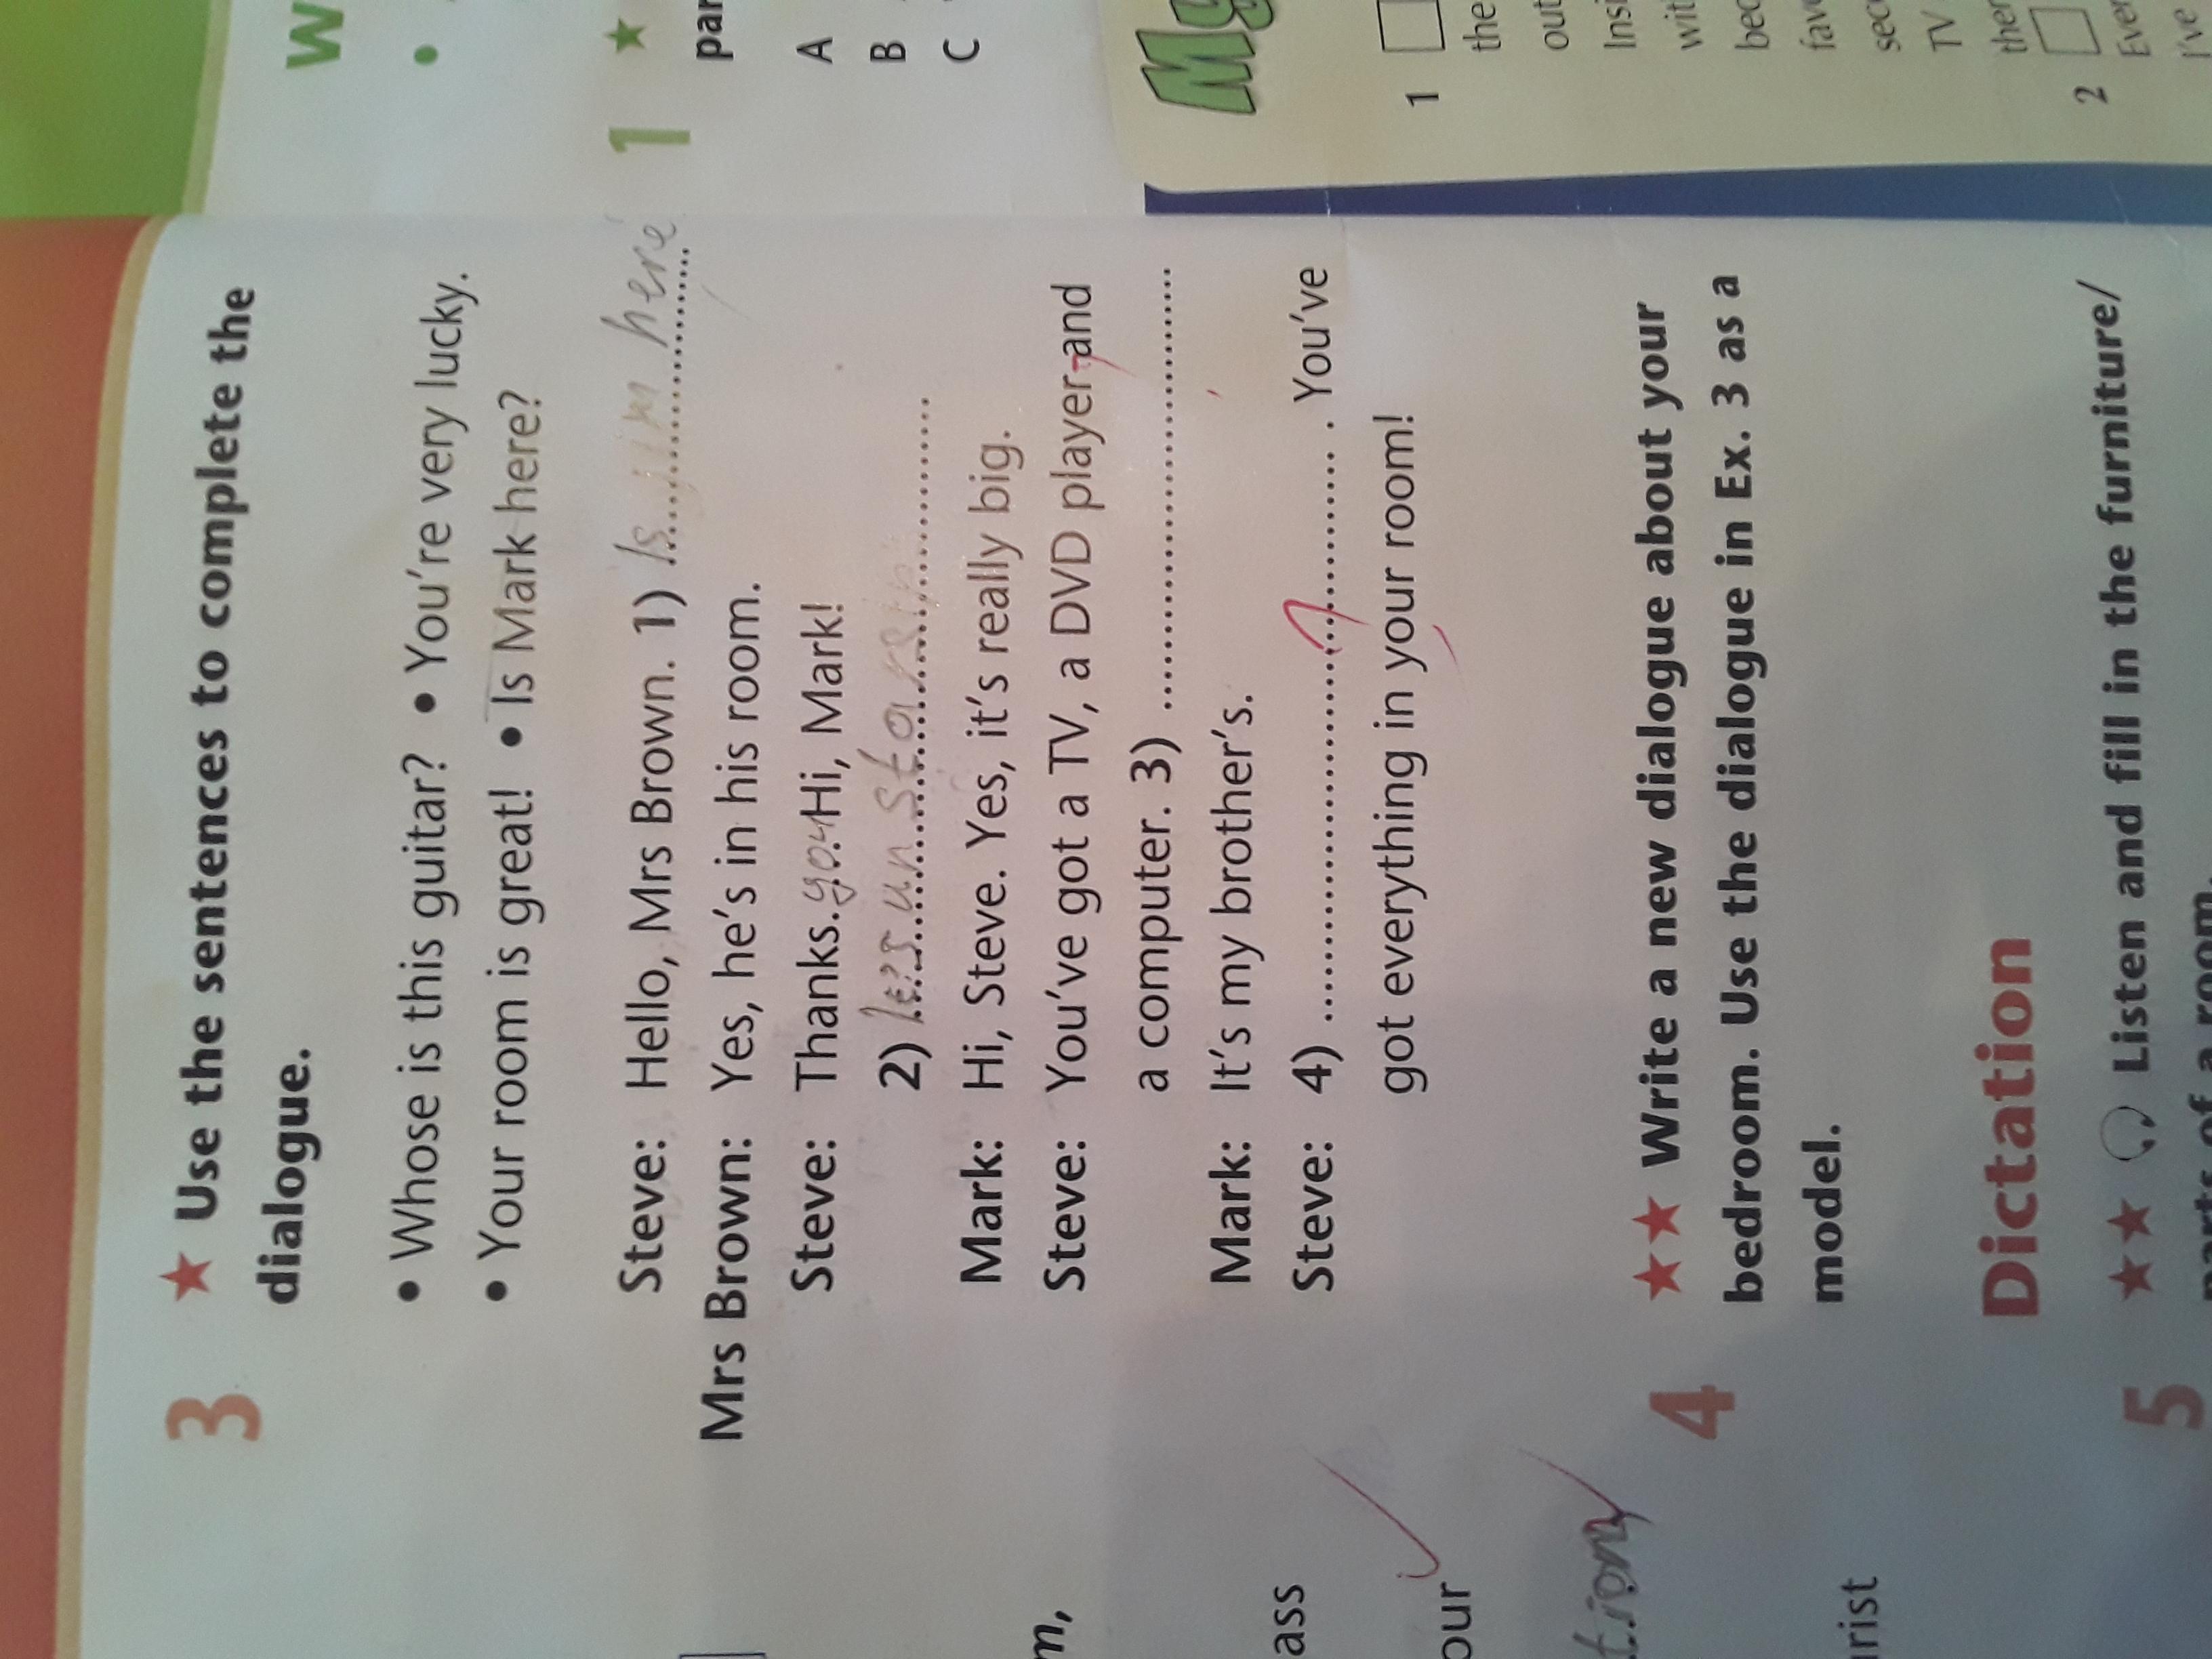 3 ★ Use the sentences to complete the
dialogue.
• Whose is this guitar? • You're very lucky.
• Your room is great! • Is Mark here?
Steve: Hello, Mrs Brown. 1) Is ........ here
Mrs Brown: Yes, he's in his room.
Steve: Thanks. you Hi, Mark!
2) ........
Mark: Hi, Steve. Yes, it's really big.
Steve: You've got a TV, a DVD player and
a computer. 3) ........
Mark: It's my brother's.
Steve: 4) ........ . You've
got everything in your room!
4 ★★ Write a new dialogue about your
bedroom. Use the dialogue in Ex. 3 as a
model.
Dictation
5 ★★ Listen and fill in the furniture/
parts of a room.
m,
ass
our
tion
rist
W
1 ★
par
A
B
C
My
1
the
out
Insi
wit
bec
fav
sec
TV
ther
2
Ever
I've